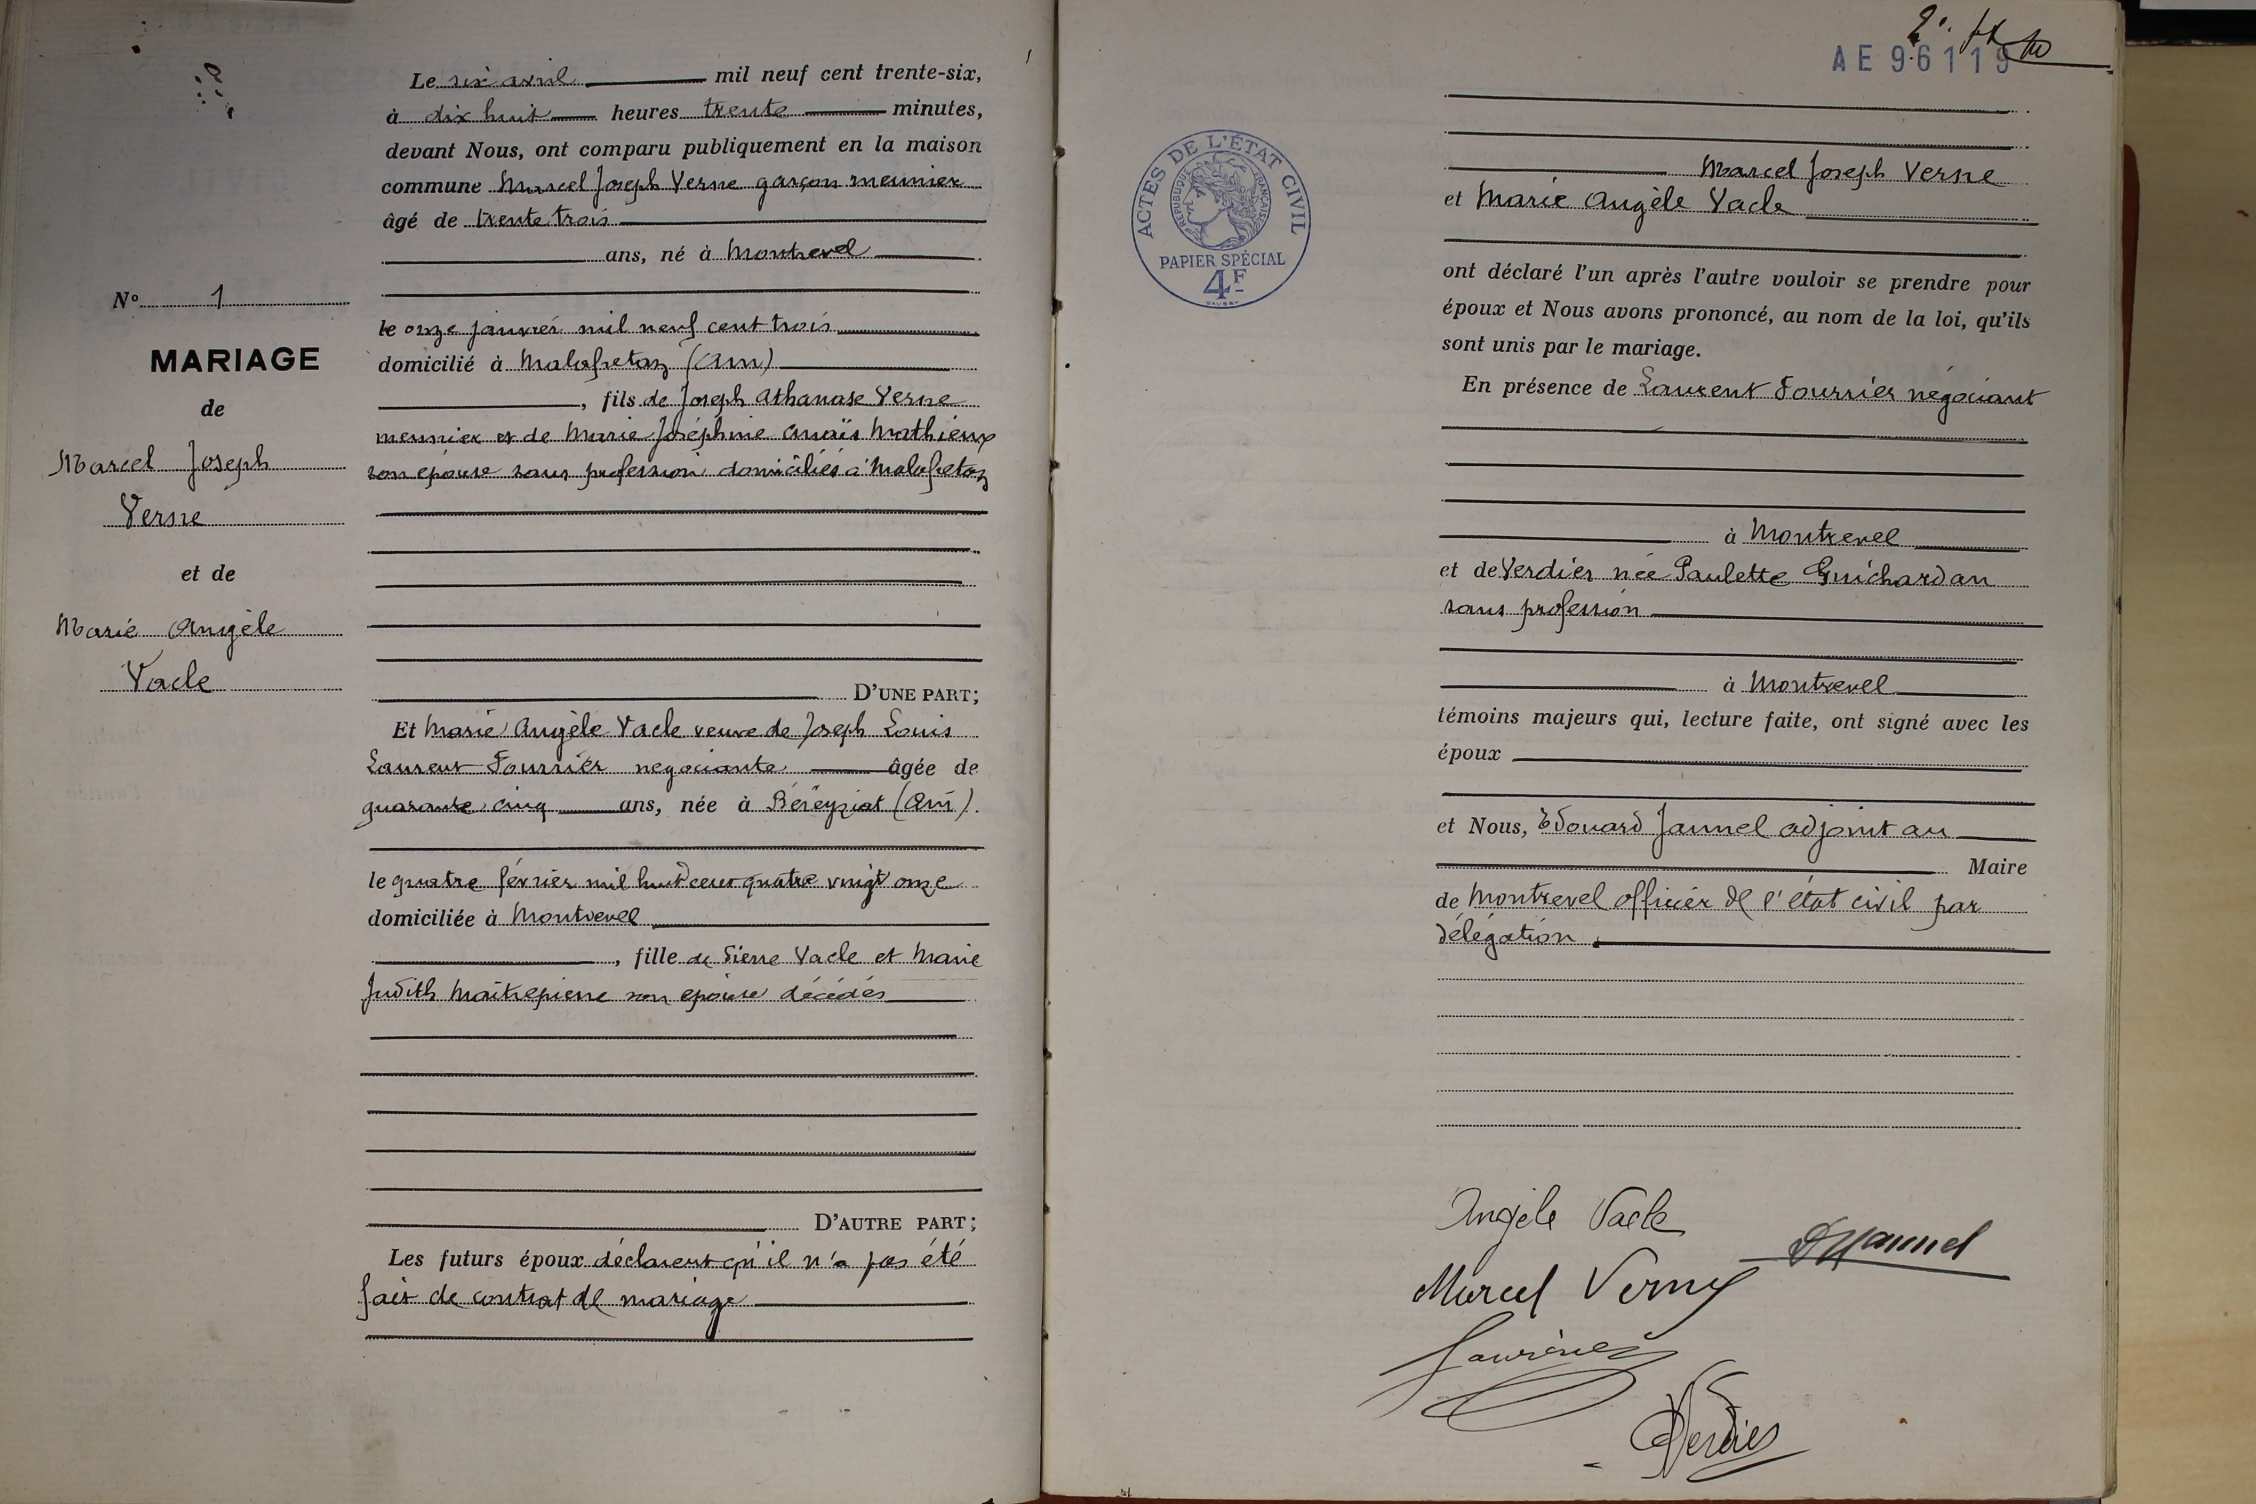 Le six avril mil neuf cent trente-six,
à dix huit heures trente minutes,
devant Nous, ont comparu publiquement en la maison
commune Marcel Joseph Verne garçon meunier
âgé de trente trois
ans, né à Montrevel
le onze janvier mil neuf cent trois
domicilié à Malafretaz (Ain)
, fils de Joseph Athanase Verne
meunier et de Marie Joséphine Anaïs Mathieux
son épouse sans profession domiciliés à Malafretaz
D'UNE PART;
Et Marie Angèle Vacle veuve de Joseph Louis
Laurent Fourrier négociante âgée de
quarante cinq ans, née à Béréyziat (Ain).
le quatre février mil huit cent quatre vingt onze
domiciliée à Montrevel
, fille de Pierre Vacle et Marie
Judith Maitrepierre son épouse décédés
D'AUTRE PART;
Les futurs époux déclarent qu'il n'a pas été
fait de contrat de mariage
No 1
MARIAGE
de
Marcel Joseph
Verne
et de
Marie Angèle
Vacle
AE 96119
ACTES DE L'ÉTAT CIVIL
RÉPUBLIQUE FRANÇAISE
PAPIER SPÉCIAL
4F
Marcel Joseph Verne
et Marie Angèle Vacle
ont déclaré l'un après l'autre vouloir se prendre pour
époux et Nous avons prononcé, au nom de la loi, qu'ils
sont unis par le mariage.
En présence de Laurent Fourrier négociant
à Montrevel
et de Verdier née Paulette Guichardan
sans profession
à Montrevel
témoins majeurs qui, lecture faite, ont signé avec les
époux
et Nous, Edouard Jaunel adjoint au
Maire
de Montrevel officier de l'état civil par
délégation
Angèle Vacle
EJaunel
Marcel Verne
Verdier